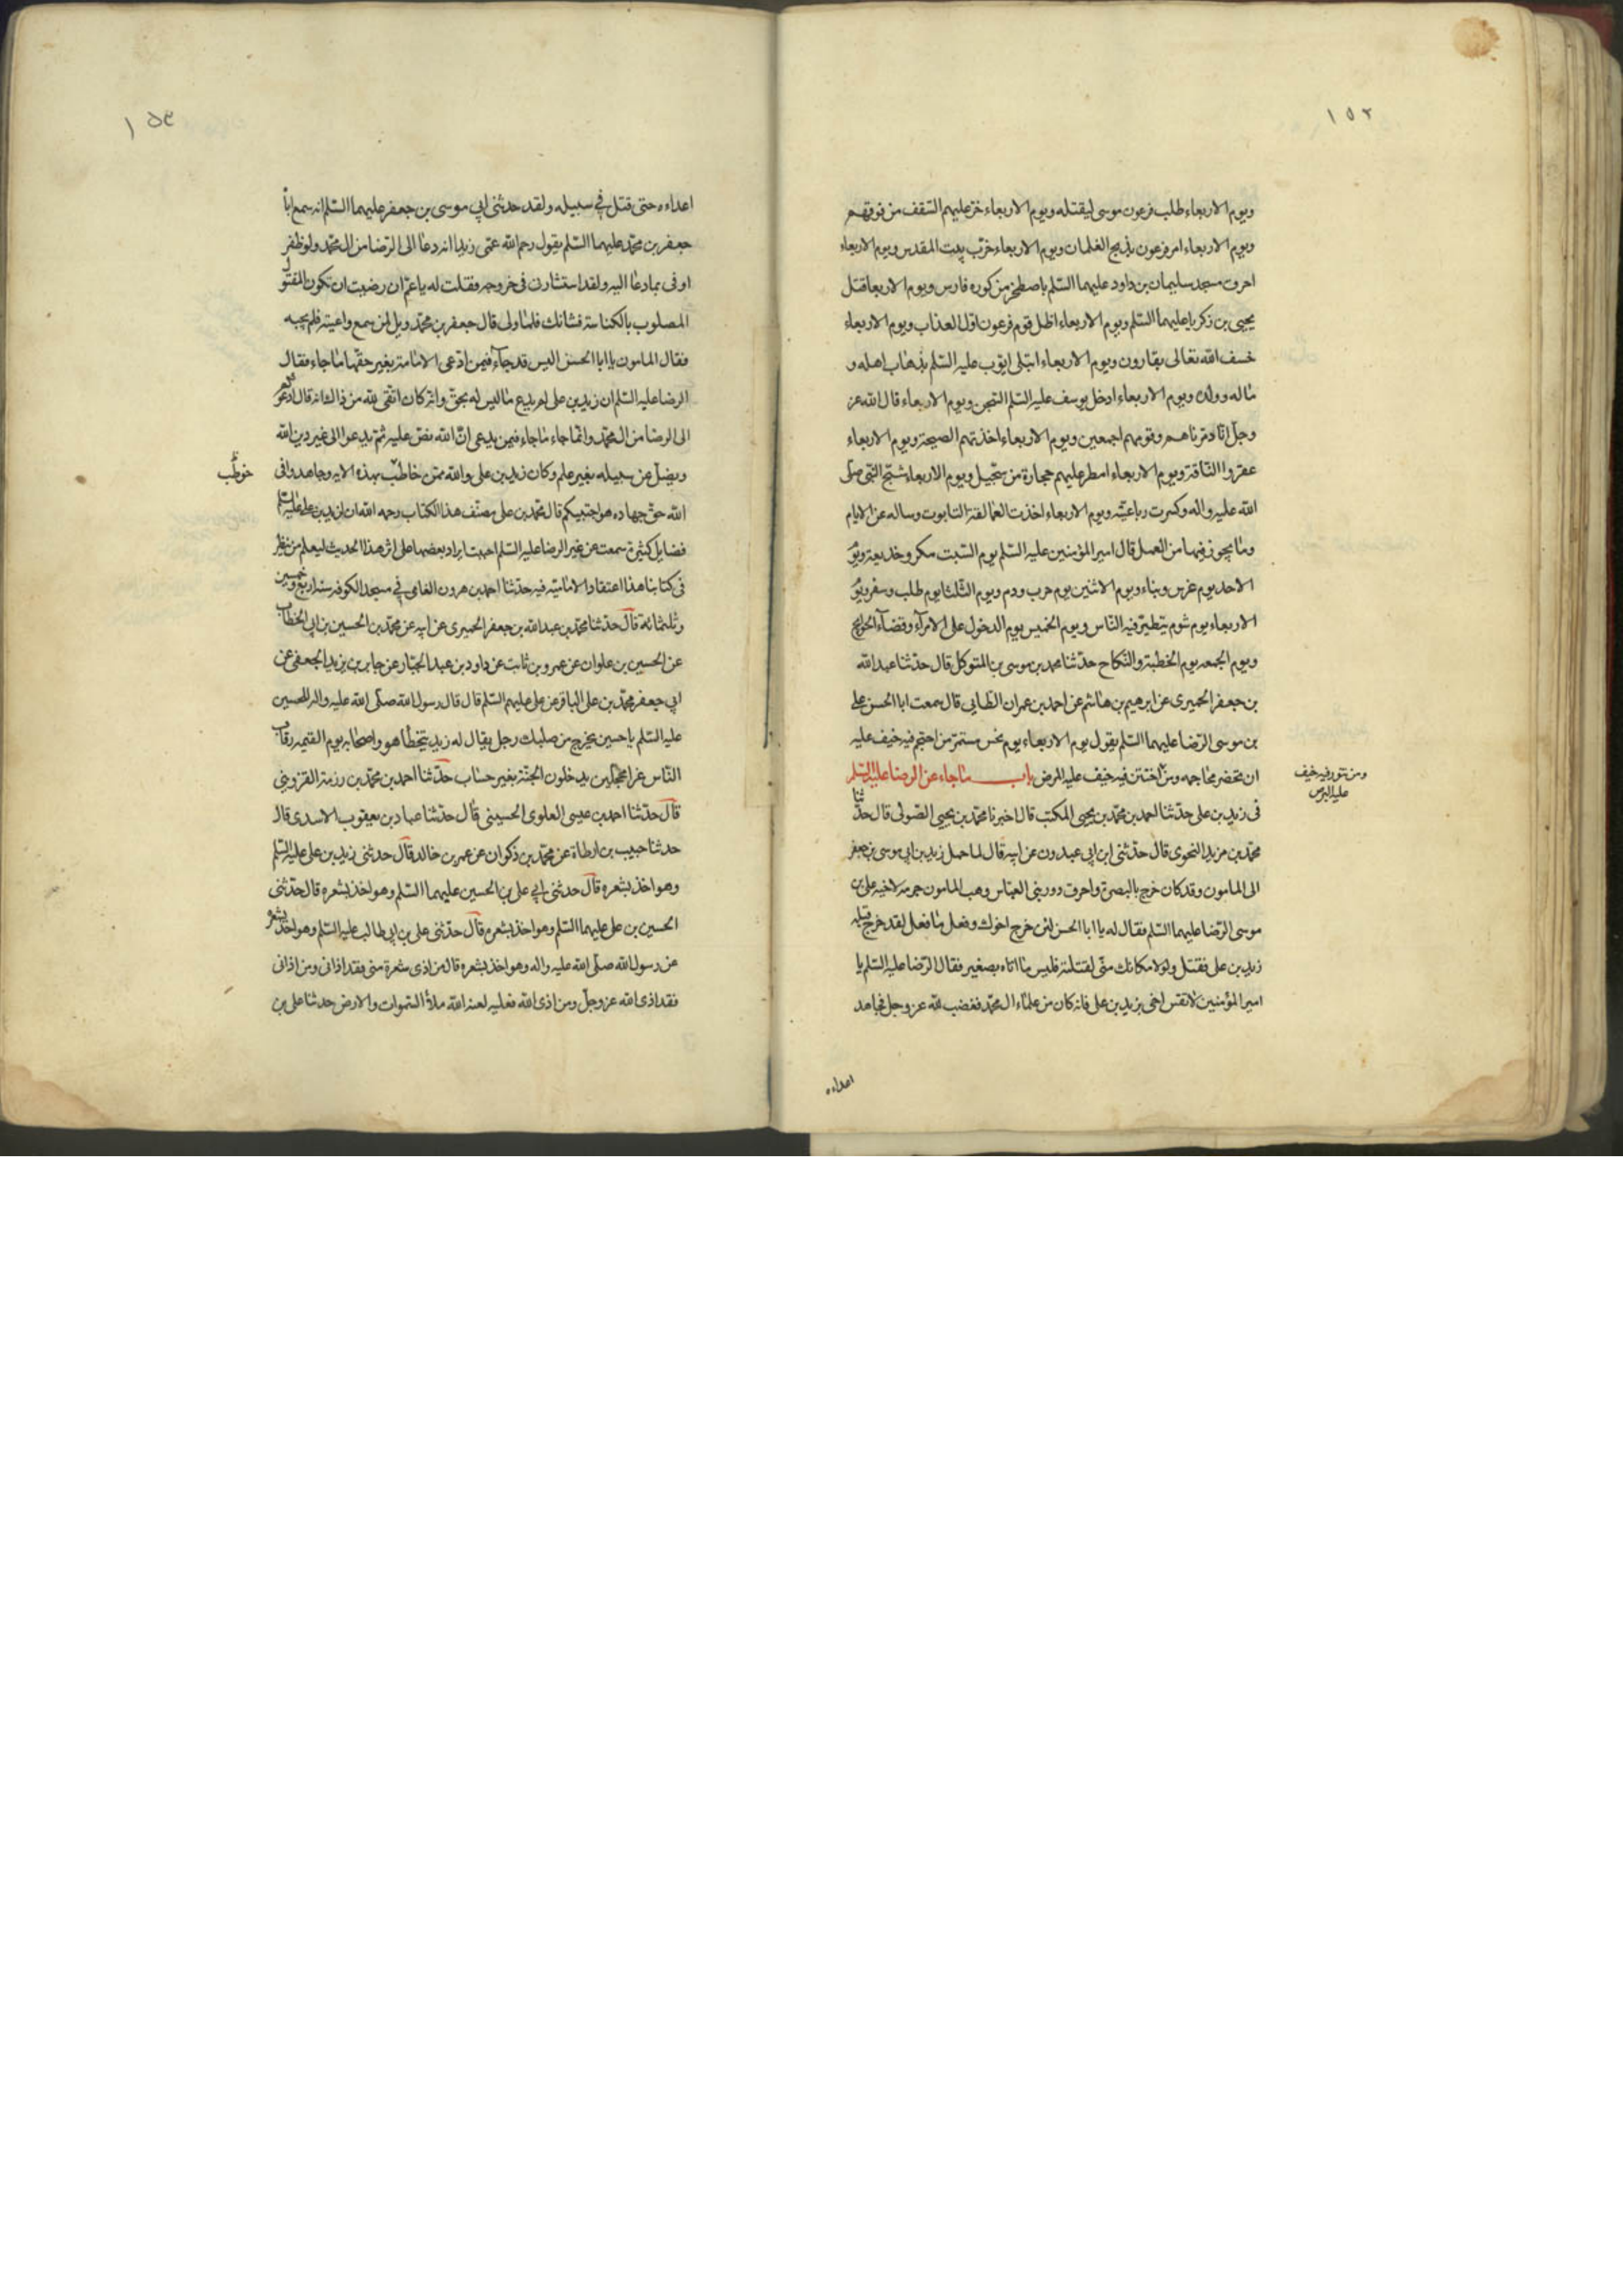 ١٥٢
ويوم الاربعاء طلب فرعون موسى ليقتله ويوم الاربعاء خر عليهم السّقف من فوقهم
ويوم الاربعاء امر فرعون بذبح الغلمان ويوم الاربعاء خرّب بيت المقدس ويوم الاربعاء
احرق مسجد سليمان بن داود عليهما السّلم باصطخر من كوره فارس ويوم الاربعا قتل
يحيى بن زكريا عليهما السّلم ويوم الاربعاء اظل قوم فرعون اوّل العذاب ويوم الاربعاء
خسف الله تعالى بقارون ويوم الاربعاء ابتلى ايّوب عليه السّلم بذهاب اهله و
ماله وولده ويوم الاربعاء ادخل يوسف عليه السّلم السّجن ويوم الاربعاء قال الله عز
وجلّ انّا دمّرناهم وقومهم اجمعين ويوم الاربعاء اخذتهم الصيحة ويوم الاربعاء
عقروا النّاقة ويوم الاربعاء امطر عليهم حجارة من سجّيل ويوم الاربعاء شجّ النّبى صلّى
الله عليه واله وكسرت رباعيّته ويوم الاربعاء اخذت العمالقة التابوت وساله عن الايام
وما يجوز فيها من العمل قال امير المؤمنين عليه السّلم يوم السّبت مكر وخديعة ويوم
الاحد يوم غرس وبناء ويوم الاثنين يوم حرب ودم ويوم الثّلثا يوم طلب وسفر ويوم
الاربعاء يوم شوم يتطيّر فيه النّاس ويوم الخميس يوم الدخول على الامراء وقضاء الحوايج
ويوم الجمعه يوم الخطبة والنّكاح حدّثنا محمد بن موسى بن المتوكل قال حدّثنا عبد الله
بن جعفر الحميرى عن ابرهيم بن هاشم عن احمد بن عمران الطّايى قال سمعت ابا الحسن على
بن موسى الرّضا عليهما السّلم يقول يوم الاربعاء يوم نحس مستمرّ من احتجم فيه خيف عليه
ان تخضر محاجمه ومن اختتن فيه خيف عليه المرض باب ما جاء عن الرضا عليه السّلم
ومن تنور فيه خيف
عليه البرص
فى زيد بن على حدّثنا احمد بن محمّد بن يحيى المكتب قال اخبرنا محمّد بن يحيى الصّولى قال حدّثنا
محمّد بن مزيد النحوى قال حدّثنى ابن ابى عبدون عن ابيه قال لما حمل زيد بن ابى موسى بن جعفر
الى المامون وقد كان خرج بالبصرة واحرق دور بنى العبّاس وهب المامون جرمه لاخيه على بن
موسى الرّضا عليهما السّلم فقال له يا ابا الحسن لئن خرج اخوك وفعل ما فعل لقد خرج قبله
زيد بن على فقتل ولولا مكانك منّى لقتلته فليس ما اتاه بصغير فقال الرّضا عليه السّلم يا
امير المؤمنين لا تقس اخى بزيد بن على فانه كان من علماء ال محمّد فغضب لله عز وجل فجاهد
اعداءه
١٥٣
اعداءه حتى قتل فى سبيله ولقد حدثنى ابى موسى بن جعفر عليهما السّلم انه سمع ابا
جعفر بن محمّد عليهما السّلم يقول رحم الله عمّى زيدا انه دعا الى الرّضا من ال محمّد ولو ظفر
اوفى بما دعا اليه ولقد استشارنى فى خروجه فقلت له يا عمّ ان رضيت ان تكون المقتول
المصلوب بالكناسة فشانك فلما ولى قال جعفر بن محمّد ويل لمن سمع واعيته فلم يجبه
فقال المامون يا ابا الحسن اليس قد جاء فيمن ادّعى الامامة بغير حقّها ما جاء فقال
الرضا عليه السّلم ان زيد بن على لم يدع ما ليس له بحقّ وانّه كان اتقى لله من ذاك انه قال ادعوكم
الى الرضا من ال محمّد وانّما جاء ما جاء فيمن يدعى انّ الله نصّ عليه ثم يدعوا الى غير دين الله
ويضلّ عن سبيله بغير علم وكان زيد بن على والله ممّن خاطب بهذه الايه وجاهدوا فى
خوطب
الله حقّ جهاده هو اجتبيكم قال محمّد بن على مصنّف هذا الكتاب رحمه الله ان لزيد بن على عليه السّلم
فضايل كثيرة سمعت عن غير الرضا عليه السّلم احببت ايراد بعضها على اثر هذا الحديث ليعلم من ينظر
فى كتابنا هذا اعتقاد الاماميّة فيه حدثنا احمد بن هرون الفامى فى مسجد الكوفه سنه اربع وخمسين
وثلثمائة قال حدّثنا محمّد بن عبد الله بن جعفر الحميرى عن ابيه عن محمّد بن الحسين بن ابى الخطّاب
عن الحسين بن علوان عن عمرو بن ثابت عن داود بن عبد الجبّار عن جابر بن يزيد الجعفى عن
ابى جعفر محمّد بن على الباقر عن على عليهم السّلم قال قال رسول الله صلّى الله عليه واله للحسين
عليه السّلم يا حسين يخرج من صلبك رجل يقال له زيد يتخطّا هو واصحابه يوم القيمه رقاب
النّاس غرا محجّلين يدخلون الجنّة بغير حساب حدّثنا احمد بن محمّد بن رزمة القزوينى
قال حدّثنا احمد بن عيسى العلوى الحسينى قال حدّثنا عباد بن يعقوب الاسدى قال
حدثنا حبيب بن ارطاة عن محمّد بن ذكوان عن عمر بن خالد قال حدثنى زيد بن على عليه السّلم
وهو اخذ بشعره قال حدثنى ابى على بن الحسين عليهما السّلم وهو اخذ بشعره قال حدّثنى
الحسين بن على عليهما السّلم وهو اخذ بشعره قال حدّثنى على بن ابى طالب عليه السّلم وهو اخذ بشعره
عن رسول الله صلّى الله عليه واله وهو اخذ بشعره قال من اذى شعرة منى فقد اذانى ومن اذانى
فقد اذى الله عز وجلّ ومن اذى الله فعليه لعنة الله ملأ السّموات والارض حدثنا على بن